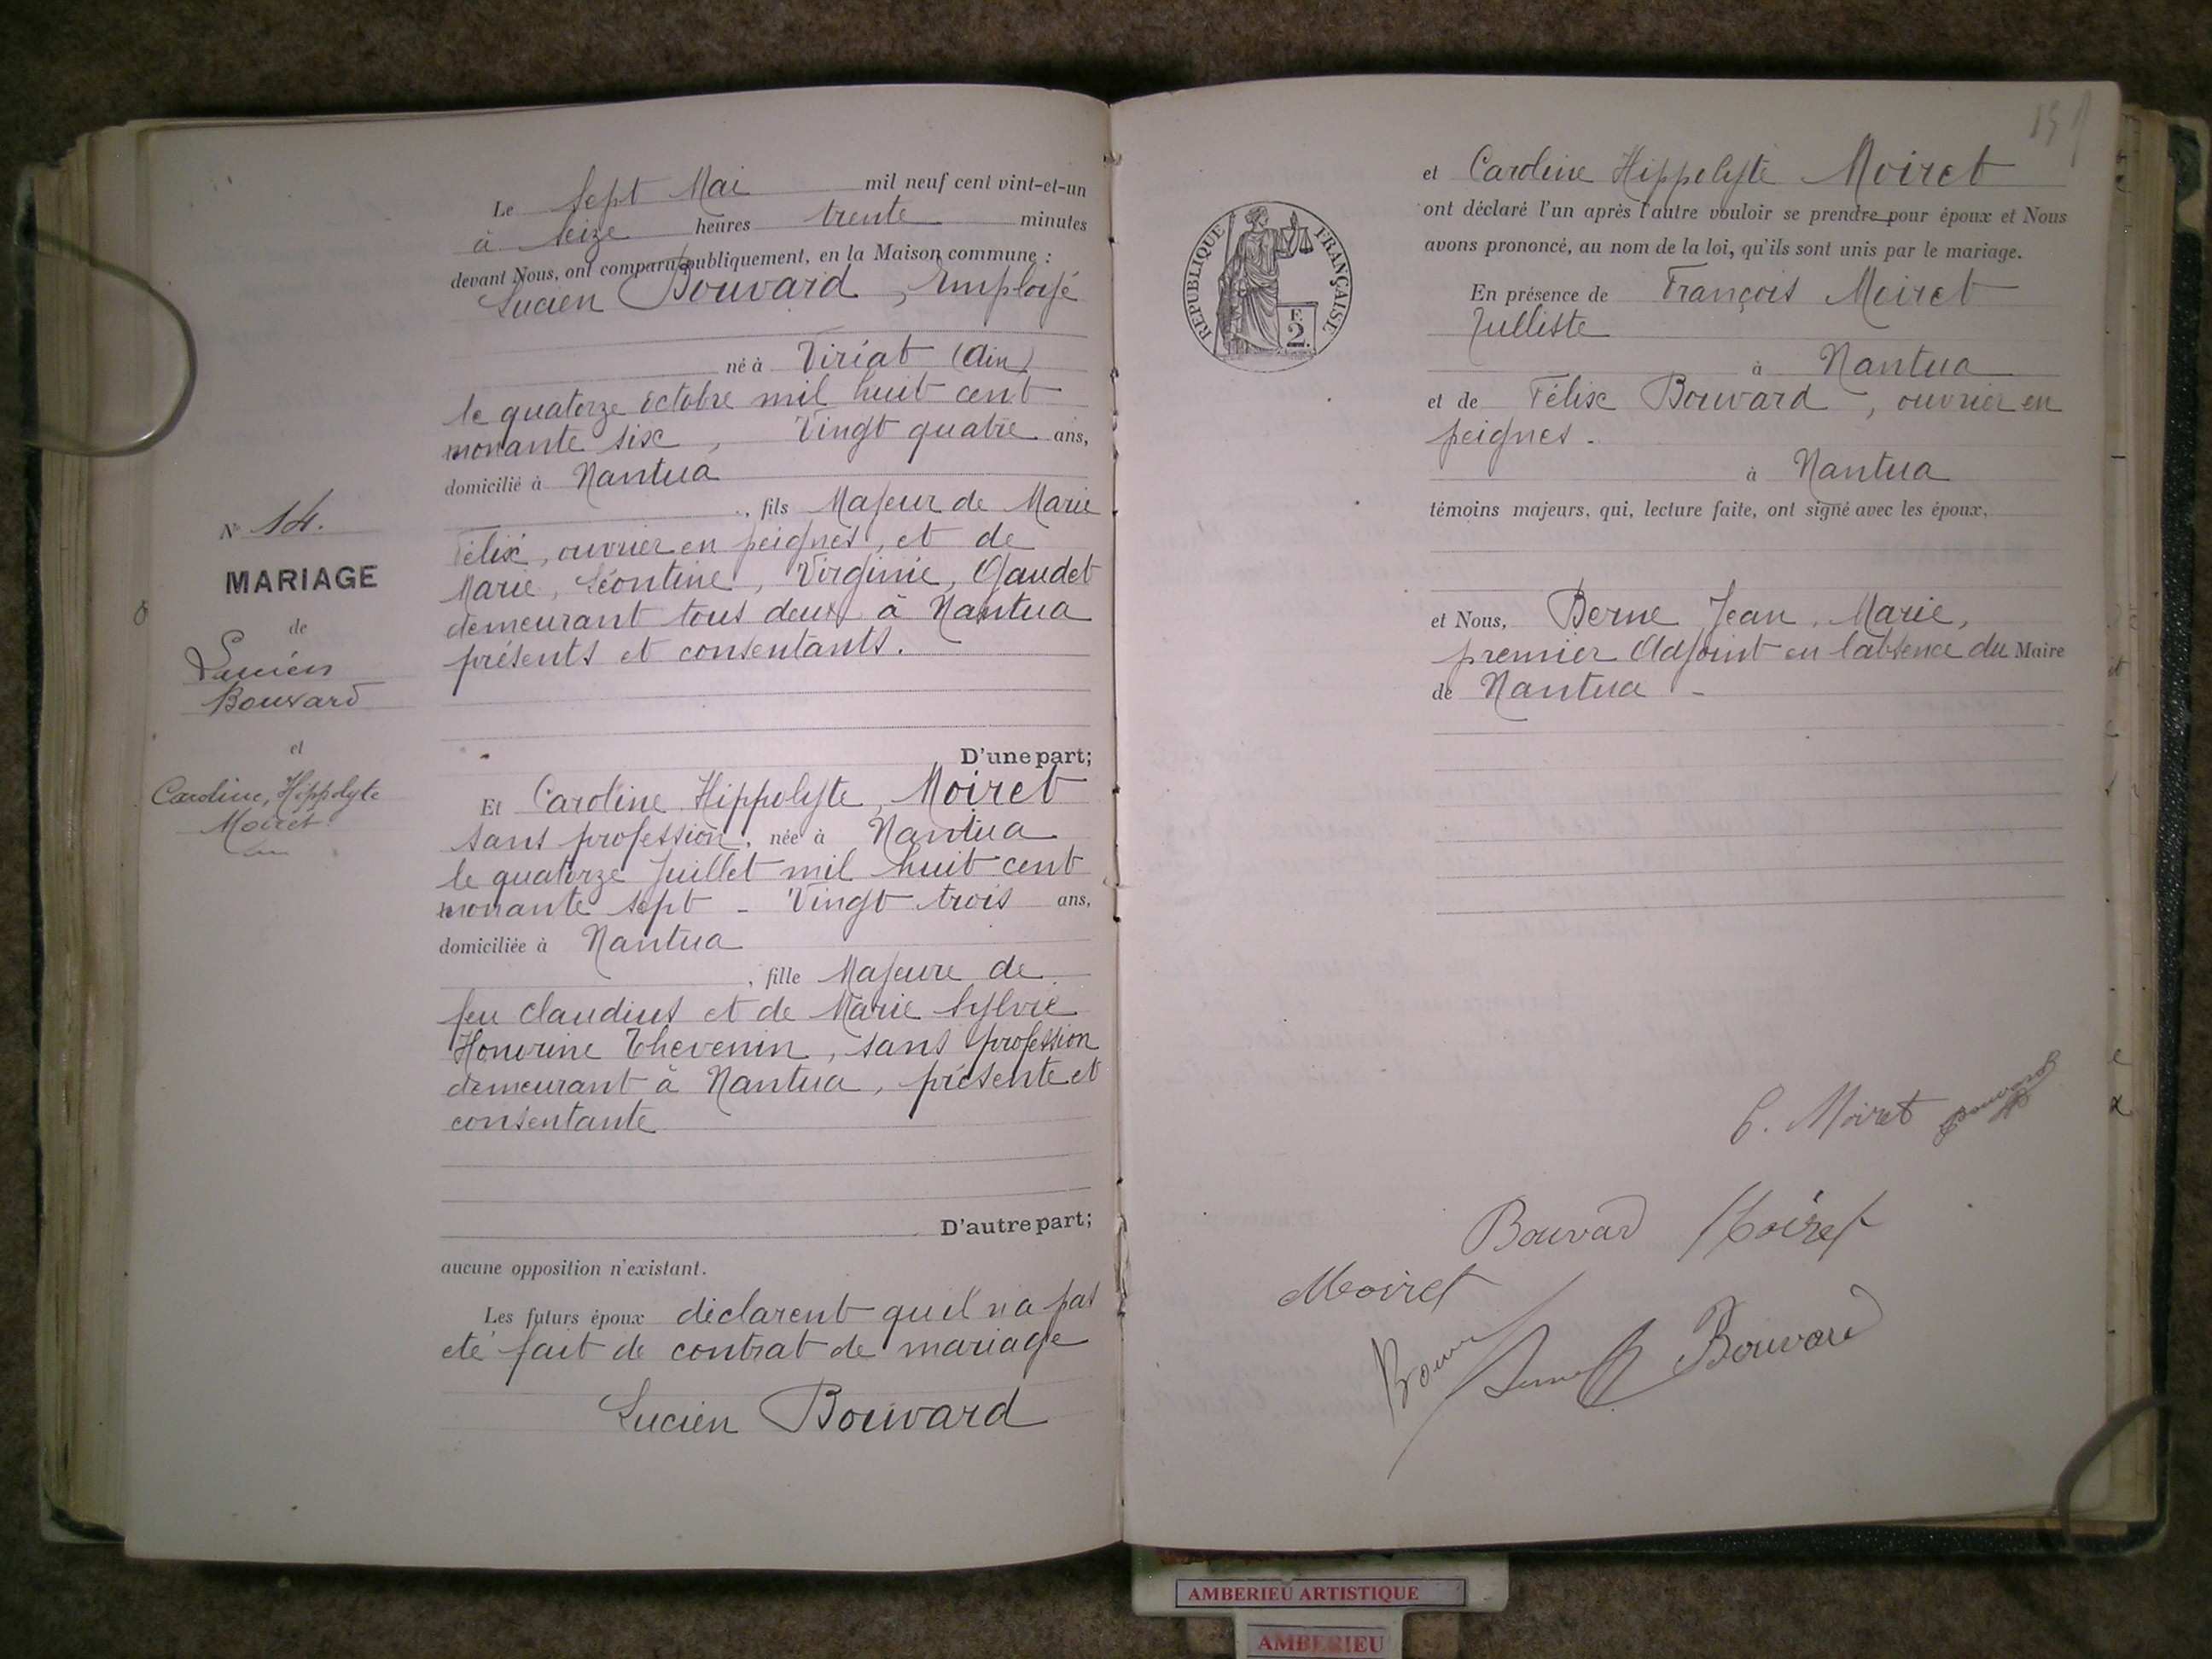 Le Sept Mai mil neuf cent vint-et-un
à Seize heures trente minutes
devant Nous, ont comparu publiquement, en la Maison commune :
Lucien Bouvard, Employé
né à Viriat (Ain)
le quatorze octobre mil huit cent
nonante six, Vingt quatre ans,
domicilié à Nantua
, fils Majeur de Marie
Félix, ouvrier en peignes, et de
Marie, Léontine, Virginie, Gaudet
demeurant tous deux à Nantua
présents et consentants.
D'une part;
Et Caroline Hippolyte, Moiret
sans profession, née à Nantua
le quatorze Juillet mil huit cent
nonante sept - Vingt trois ans,
domiciliée à Nantua
, fille Majeure de
feu Claudius et de Marie Sylvie
Honorine Thevenin, sans profession
demeurant à Nantua, présente et
consentante
D'autre part;
aucune opposition n'existant.
Les futurs époux déclarent qu'il n'a pas
été fait de contrat de mariage
Lucien Bouvard
N° 14.
MARIAGE
de
Lucien
Bouvard
et
Caroline, Hippolyte
Moiret
REPUBLIQUE FRANÇAISE
F.
2.
et Caroline Hippolyte Moiret
ont déclaré l'un après l'autre vouloir se prendre pour époux et Nous
avons prononcé, au nom de la loi, qu'ils sont unis par le mariage.
En présence de François Moiret
Tulliste
à Nantua
et de Félix Bouvard, ouvrier en
peignes.
à Nantua
témoins majeurs, qui, lecture faite, ont signé avec les époux,
et Nous, Berne Jean, Marie,
premier Adjoint en l'absence du Maire
de Nantua -
C. Moiret Bouvard
Bouvard Moiret
Moiret
Berne Bouvard
AMBERIEU ARTISTIQUE
AMBERIEU